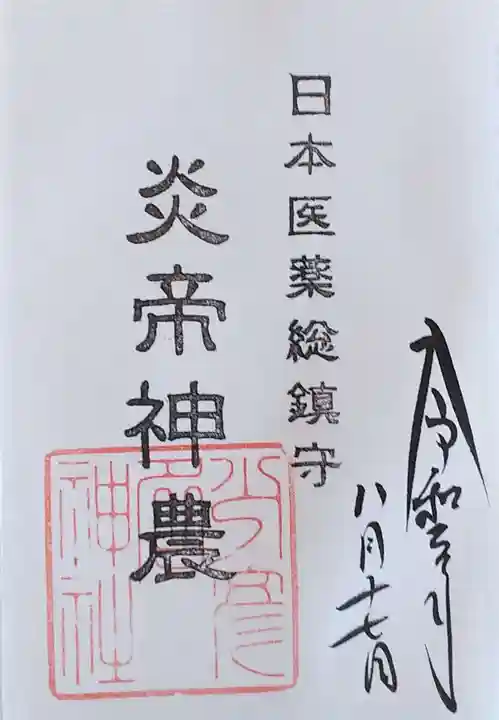 日本医薬総鎮守
炎帝神農
少彦
名
神社
令和
八月十七日